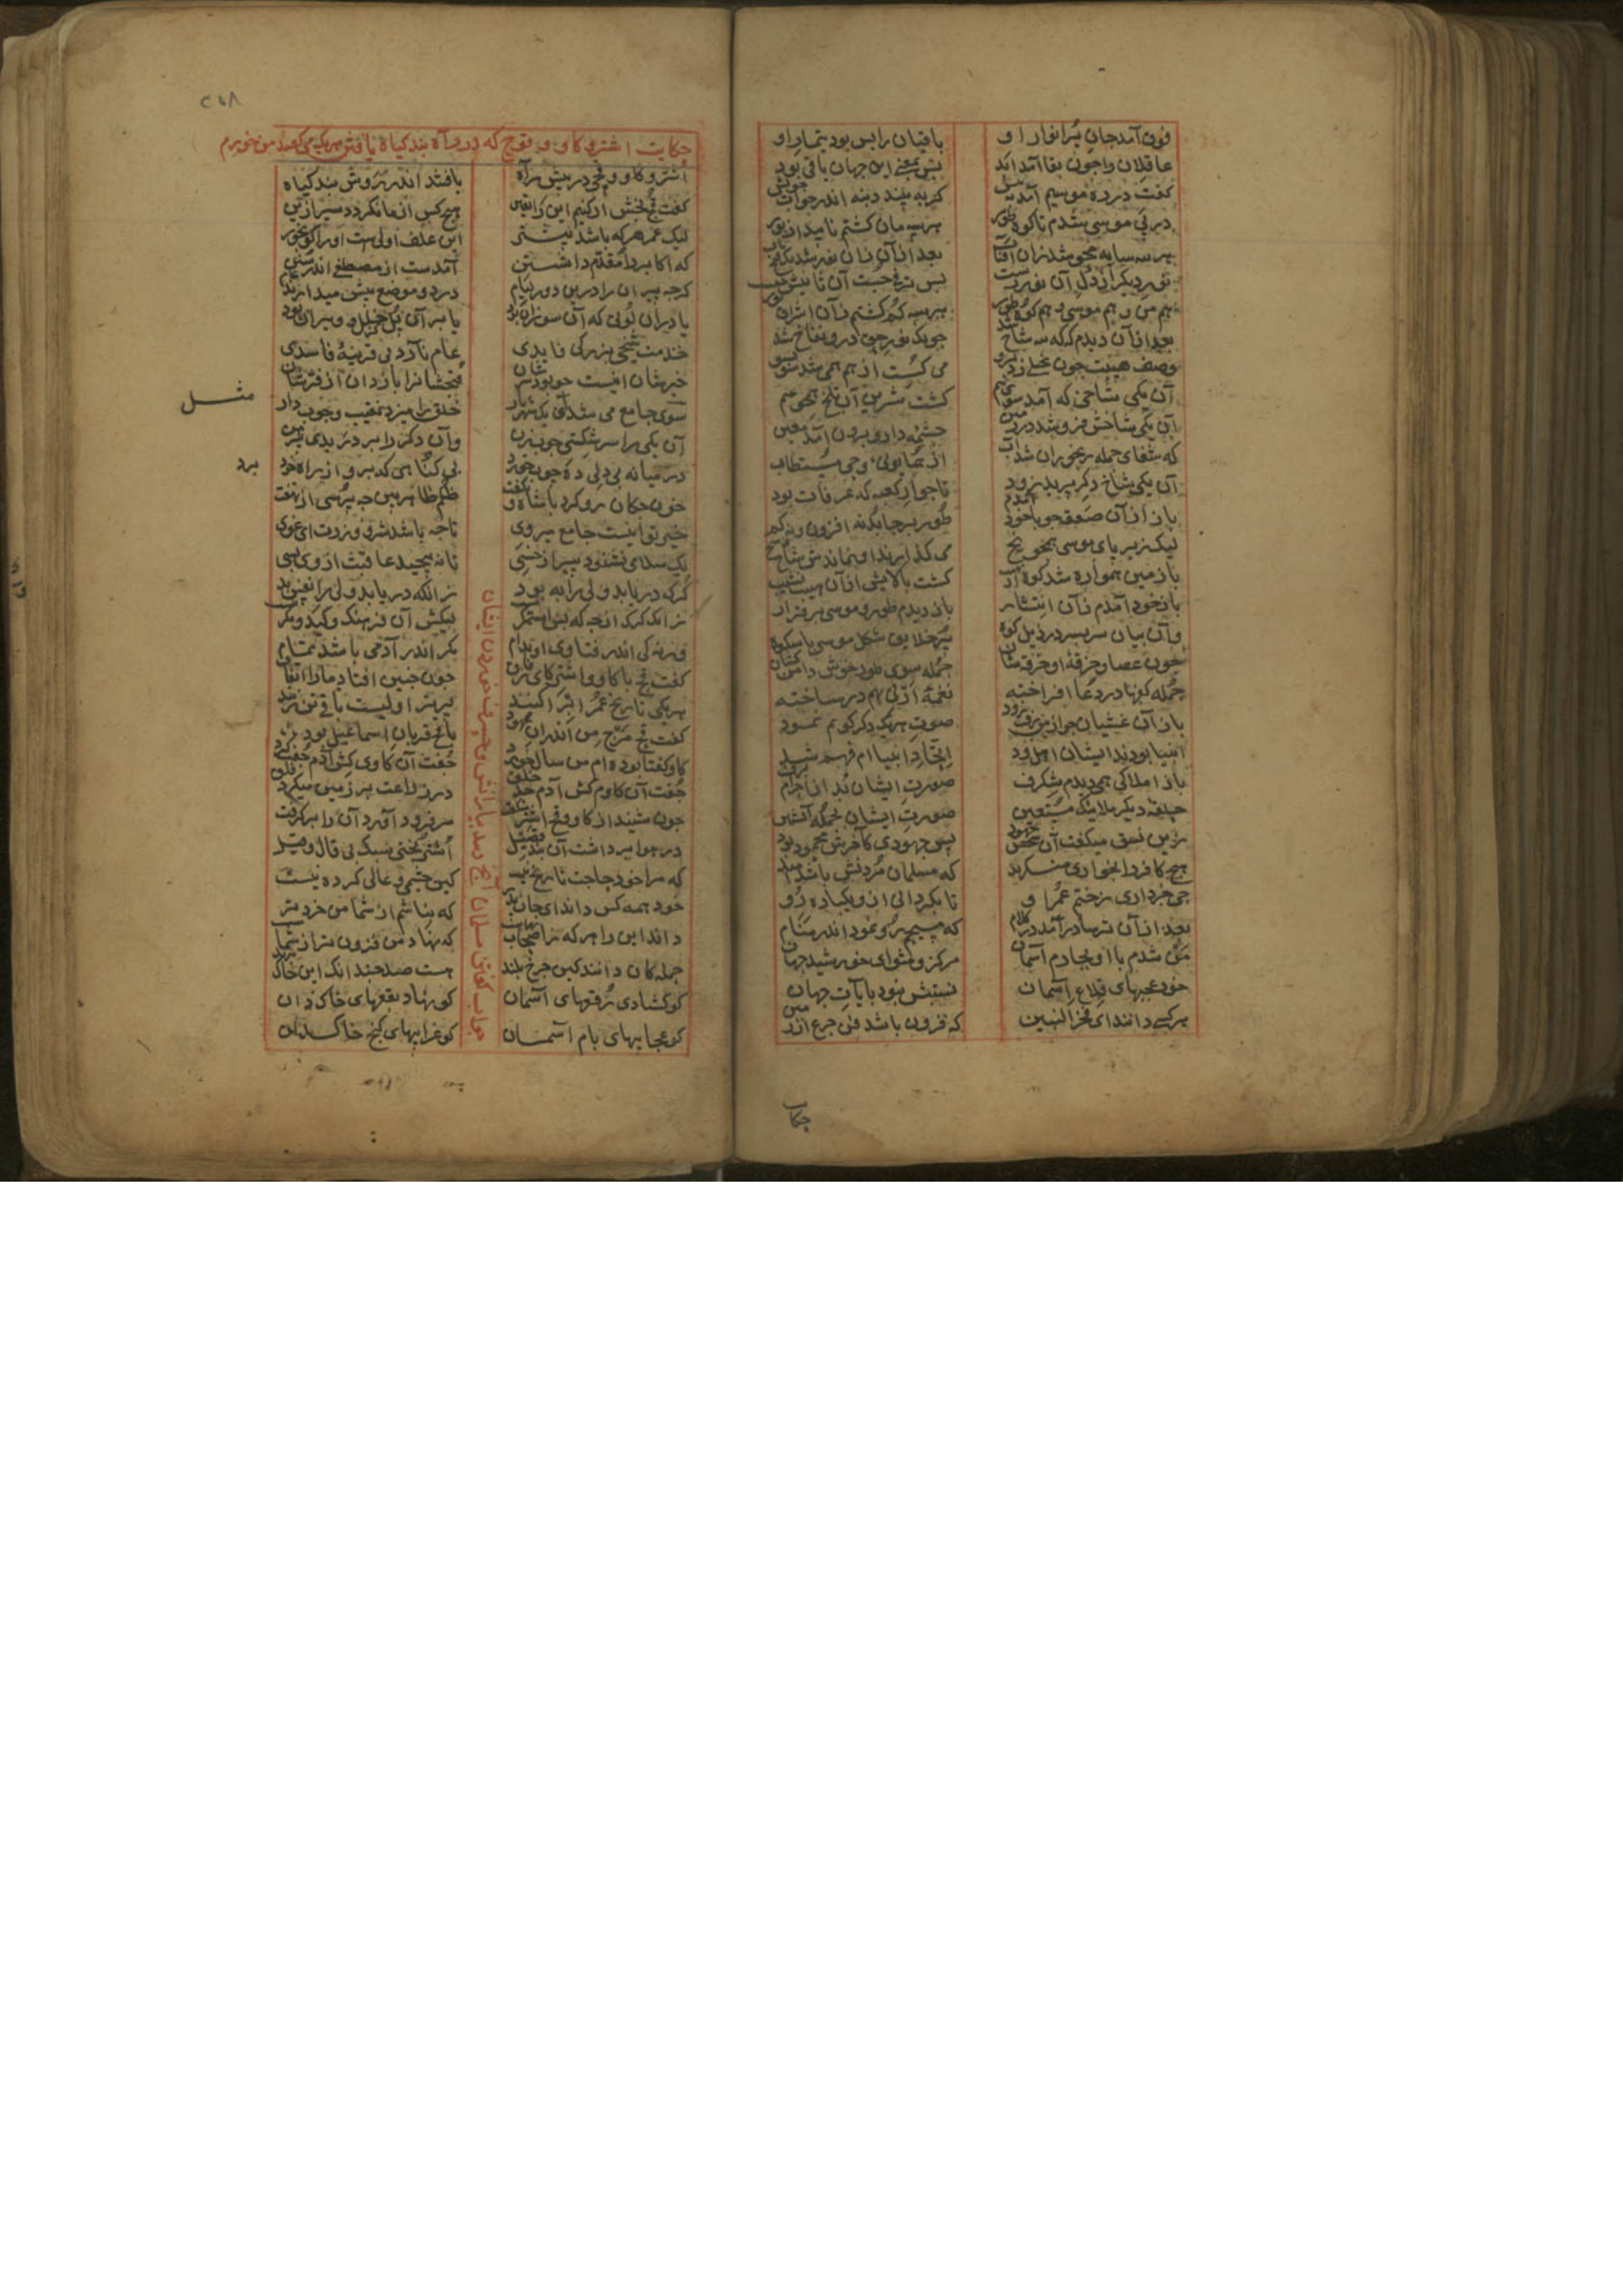 فوق آمد جان پر انوار او باقیان را بس بود تیمار او
عاقلان را جون بقا آمد ابد بس بمعنی این جهان باقی بود
کفت در ره موسیم آمد به پیش کربه بیند دنبه اندر خواب خویش
در پی موسی شدم تا کوه طور هر سه مان کشتم ناپیدا از نور
هر سه سایه محو شد زان آفتاب بعد از آن زان نور شد یک فتح باب
نور دیکر از دل آن نور رست بس ترقی جست آن ثانیش جست
هم من و هم موسی و هم کوه طور هر سه کم کشتم زان اشراق نور
بعد از آن دیدم که که سه شاخ شد جونک نور حق درو نفاخ شد
وصف هیبت جون تجلی زد برو می کسست از هم همی شد سو بسو
آن یکی شاخی که آمد سوی یم کشت شیرین آب تلخ همجو سم
آن یکی شاخش فرو شد در زمین جشمه دارو برون آمد معین
که شفای جمله رنجوران شد آب از همایونی وحی مستطاب
آن یکی شاخ دکر پرید زود تا جوار کعبه که عرفات بود
باز از آن صعقه جو با خود آمدم طور بر جا بد نه افزون و نه کم
لیک زیر پای موسی همجو یخ می کدازید او نماندش شاخ
با زمین هموار شد کوه از نهیب کشت بالایش از آن هیبت نشیب
باز با خود آمدم زان انتشار باز دیدم طور و موسی برقرار
وآن بیابان سربسر در ذیل کوه پر خلایق شکل موسی باشکوه
جون عصا و خرقه او خرقه شان جمله سوی طور خوش دامن کشان
جمله کفها در دعا افراخته نغمه ارنی بهم در ساخته
باز آن غشیان جو از من رفت زود صورت هر یک دکر کونم نمود
انبیا بودند ایشان اهل ود اتحاد انبیاام فهم شد
باز املاکی همی دیدم شکرف صورت ایشان بد از اجرام برف
حلقه دیکر ملایک مستعین صورت ایشان بجمله آتشین
زین نسق میکفت آن شخص جهود بس جهودی کآخرش محمود بود
هیج کافر را بخواری منکرید که مسلمان مردنش باشد امید
جی خبر داری ز ختم عمر او تا بکردانی ازو یکباره رو
بعد از آن ترسا درآمد در کلام که مسیحم رو نمود اندر منام
من شدم با او بجارم آسمان مرکز و مثوای خورشید جهان
خود عجبهای قلاع آسمان نسبتش نبود بآیات جهان
هر کسی دانند ای فخر البنین که فزون باشد فن جرخ از زمین
حکا
٢٦٨
حکایت اشتر و کاو و قوج که در راه بند کیاه یافتن هر یک می کفت من خورم
اشتر و کاو و قجی در پیش راه یافتند اندر روش بند کیاه
کفت قج بخش ار کنیم این را یقین هیج کس از ما نکردد سیر ازین
لیک عمر هر که باشد بیشتر این علف اولی ست او را کو بخور
که اکابر را مقدم داشتن آمدست از مصطفی اندر سنن
کرجه پیران را درین دور لئام در دو موضع پیش میدارند عام
یا در آن لوتی که آن سوزان بود یا بر آن پل کز خلل ویران بود
خدمت شیخی بزرکی قایدی عام نآرد بی قرینه فاسدی
خیرشان اینست جه بود شرشان قبحشان را بازدان از فرشان
مثـل
سوی جامع می شد آن یک شهریار خلق را میزد نقیب و جوب دار
آن یکی را سر شکستی جوب زن وآن دکر را بر دریدی پیرهن
در میانه بی دلی ده جوب خورد بی کناهی که برو از راه برد
برد
خون جکان رو کرد با شاه و بکفت ظلم ظاهر بین جه پرسی از نهفت
خیر تو اینست جامع میروی تا جه باشد شر و وزرت ای غوی
یک سلامی نشنود پیر از خسی تا نپیجد عاقبت از وی بسی
کرک دریابد ولی را به بود زانکه دریابد ولی را نفس بد
زانک کرک ارجه که بس استمکریست لیکش آن فرهنک و کید و مکر
ورنه کی اندر فتادی او بدام مکر اندر آدمی باشد تمام
کفت قج با کاو و اشتر کای رفاق جون جنین افتاد ما را اتفاق
هر یکی تاریخ عمر ابدا کنید پیرتر اولیست باقی تن زنید
کفت قج مرج من اندر آن عهود باغ قربان اسماعیل بود
کاو کفتا بوده ام من سال خورد جفت آن کاوی کش آدم جفت کرد
جفت آن کاوم کش آدم جد خلق در زراعت بر زمین میکرد فلق
جون شنید از کاو و قج اشتر شکفت سر فرود آورد آن را برکرفت
در هوا برداشت آن بند قصیل اشتر بختی سبک بی قال و قیل
که مرا خود حاجت تاریخ نیست کین جنین جسمی و عالی کردنیست
خود همه کس داند ای جان پدر که نباشم از شما من خردتر
داند این را هر که ز اصحاب نهاست که نهاد من فزون تر از شماست
جملکان دانند کین جرخ بلند هست صد جندانک این خاک نژند
کو کشاد رقعهای آسمان کو نهاد بقعهای خاکدان
کو عجایبهای بام آسمان کو غرایبهای کنج خاکدان
جواب کفتن مسلمان آنج دید بیارانش و حسرت خوردن ایشان